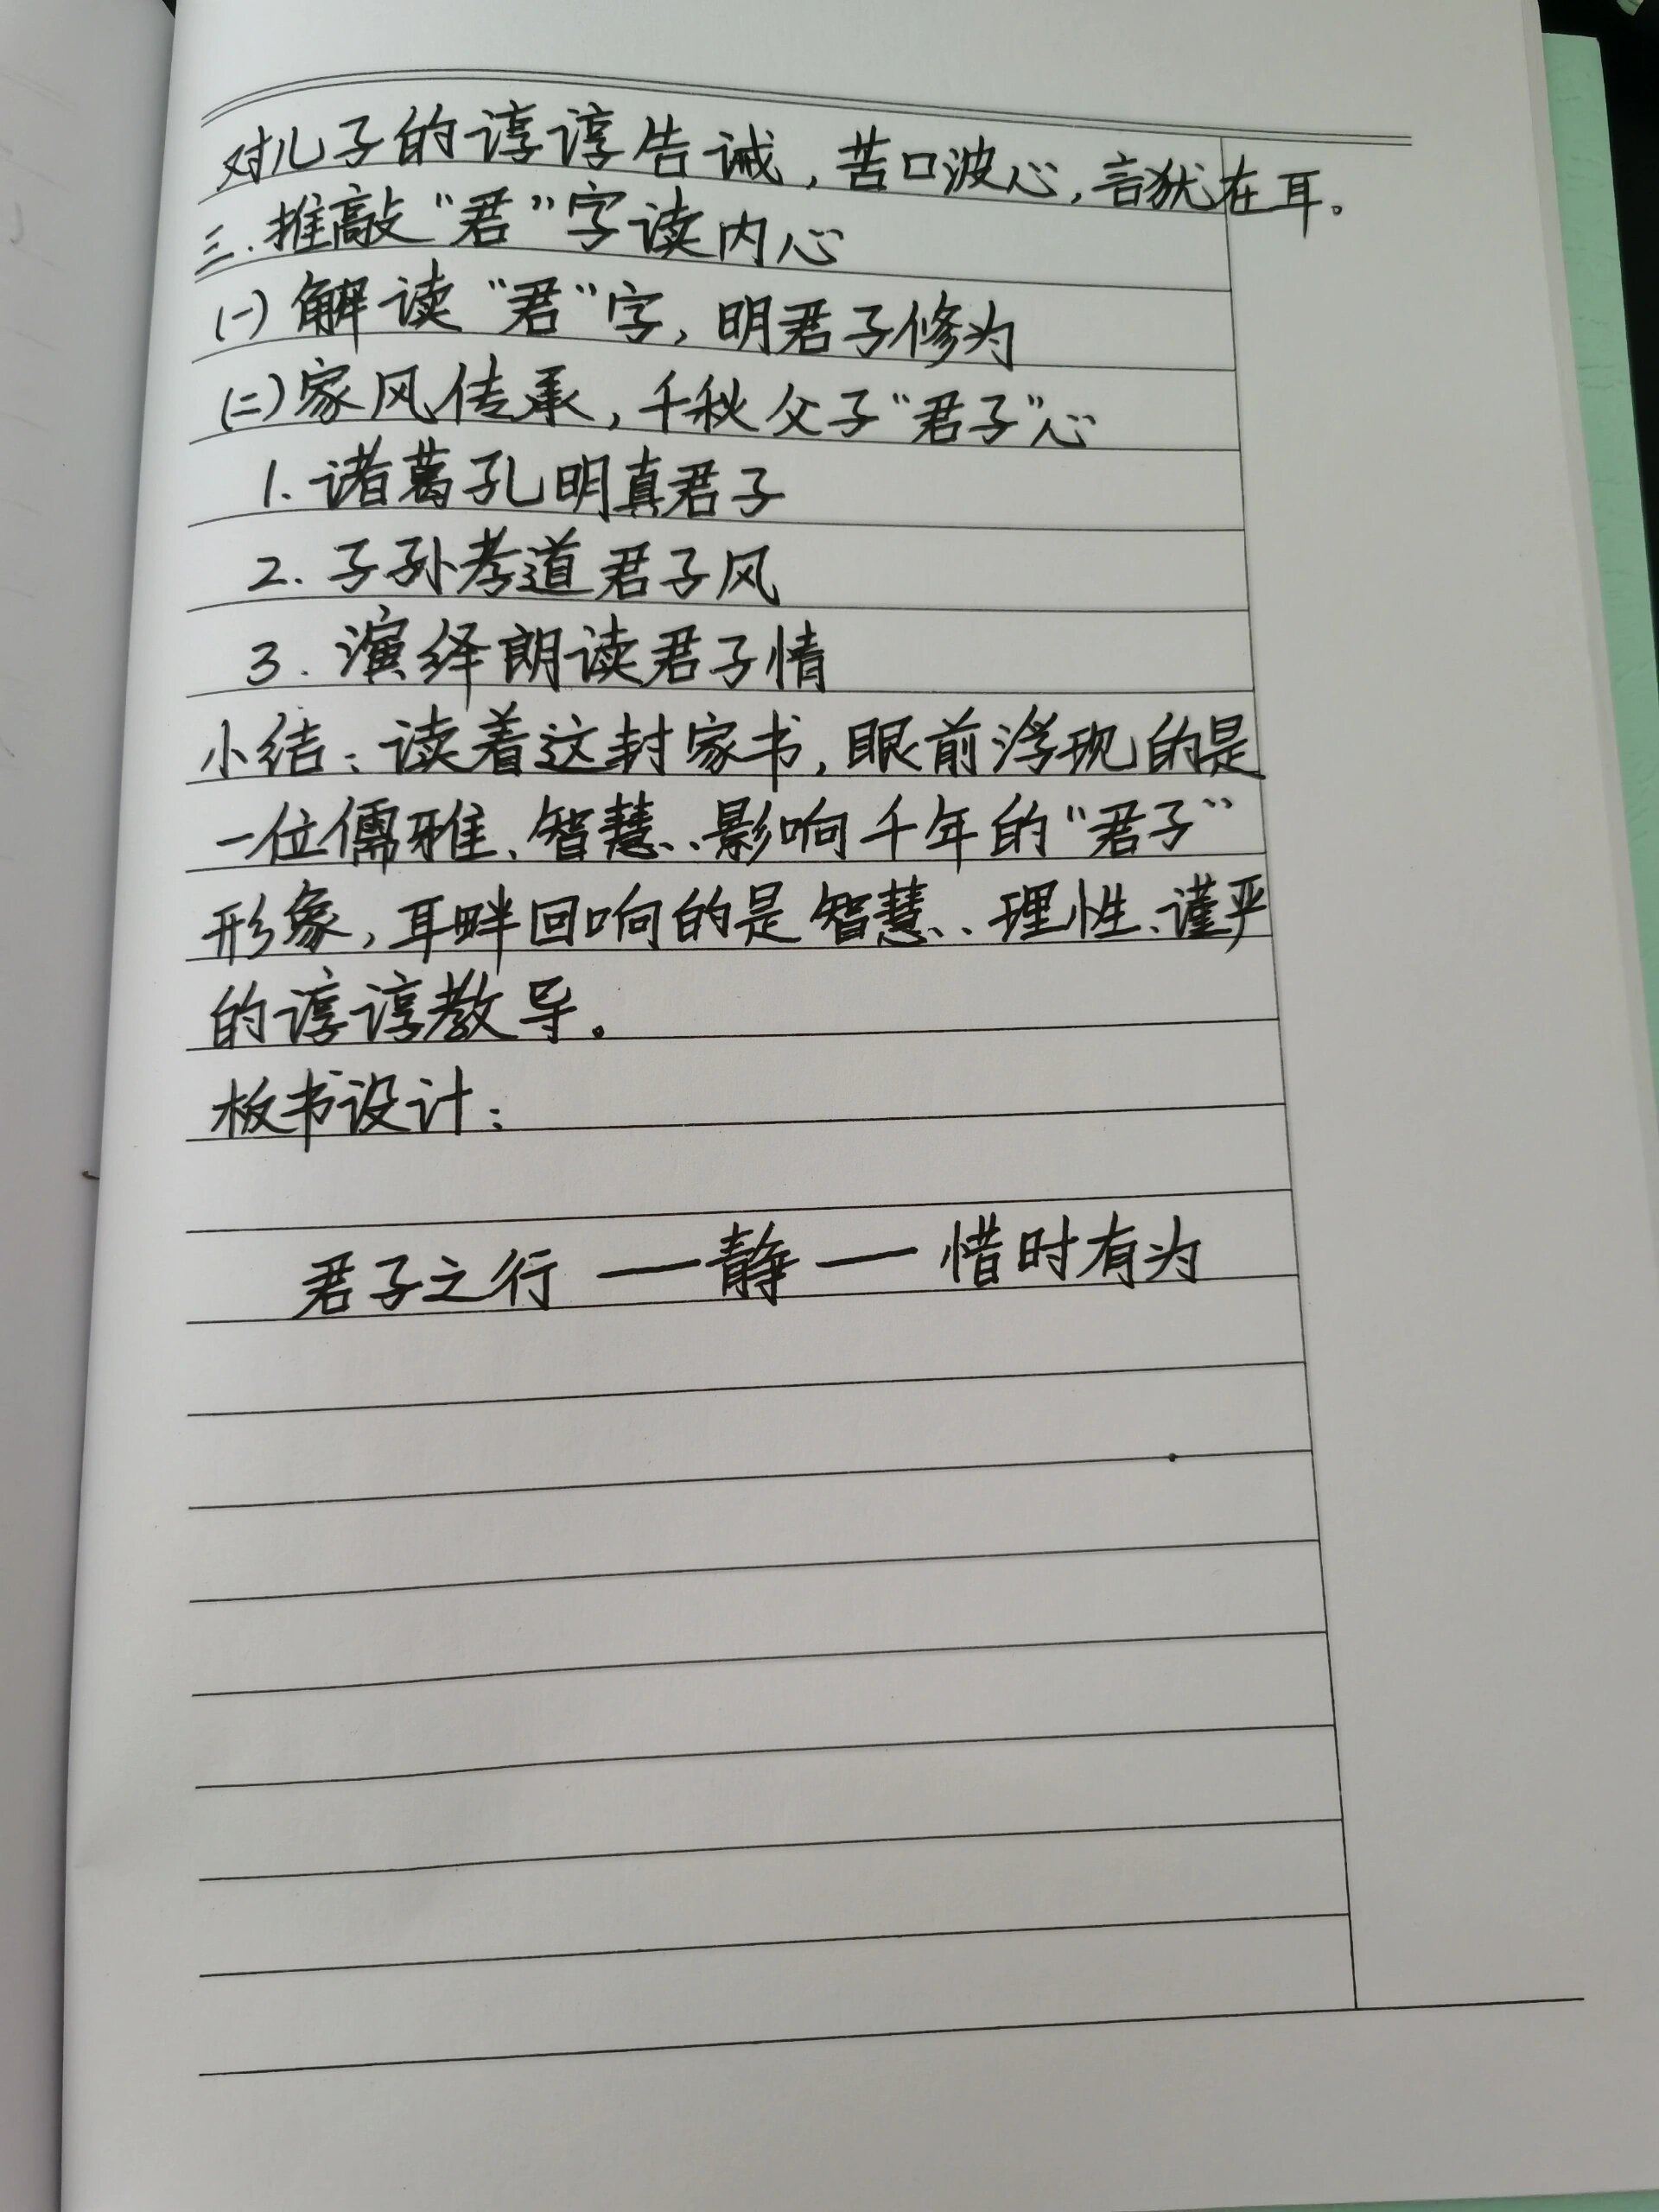 对儿子的谆谆告诫，苦口波心，言犹在耳。
三.推敲“君”字读内心
(一)解读“君”字，明君子修为
(二)家风传承，千秋父子“君子”心
1.诸葛孔明真君子
2.子孙孝道君子风
3.演绎朗读君子情
小结：读着这封家书，眼前浮现的是
一位儒雅、智慧、影响千年的“君子”
形象，耳畔回响的是智慧、理性、谨严
的谆谆教导。
板书设计：
君子之行 — 静 — 惜时有为